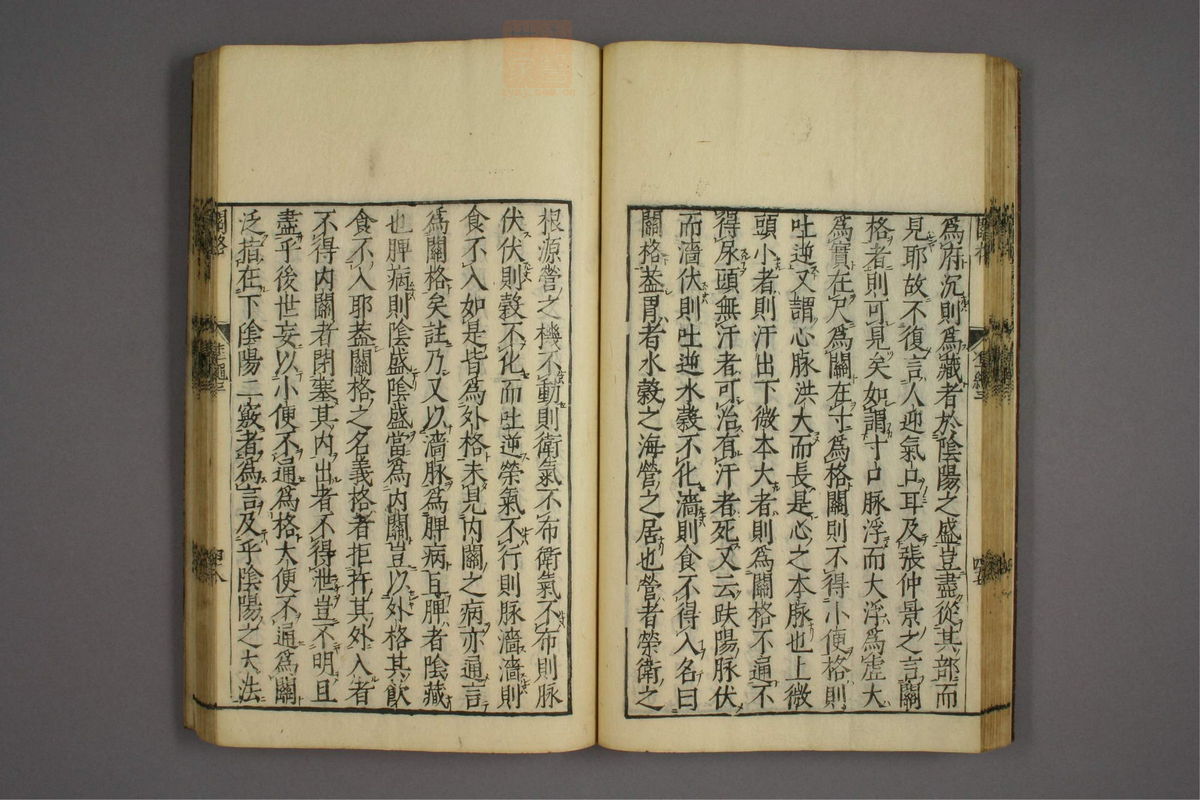 為府沉則為藏者於陰陽之盛豈盡從其部而
見耶故不復言人迎氣口耳及張仲景之言關
格者則可見矣如謂寸口脉浮而大浮為虛大
為實在尺為關在寸為格關則不得小便格則
吐逆又謂心脉洪大而長是心之本脉也上微
頭小者則汗出下微本大者則為關格不通不
得尿頭無汗者可治有汗者死又云趺陽脉伏
而濇伏則吐逆水穀不化濇則食不得入名曰
關格葢胃者水穀之海營之居也營者榮衛之
根源營之機不動則衛氣不布衛氣不布則脉
伏伏則穀不化而吐逆榮氣不行則脉濇濇則
食不入如是皆為外格未見内關之病亦通言
為關格矣註乃又以濇脉為脾病且脾者陰藏
也脾病則陰盛陰盛當為内關豈以外格其飲
食不入耶葢關格之名義格者拒扞其外入者
不得内關者閉塞其内出者不得泄豈不明且
盡乎後世妄以小便不通為格大便不通為關
泛指在下陰陽二竅者為言及乎陰陽之大法
關格